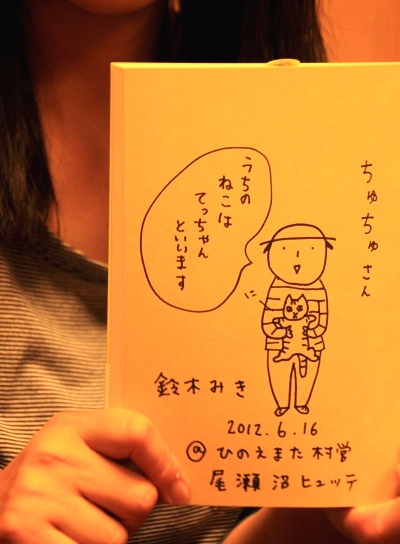 ちゅちゅさん
うちの
ねこは
てっちゃん
といいます
鈴木みき
2012.6.16
@ひのえまた村営
尾瀬沼ヒュッテ